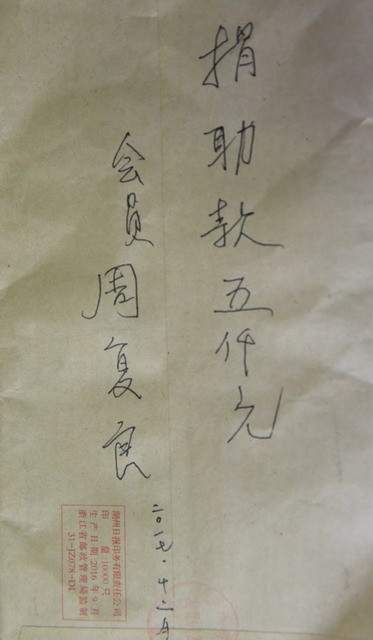 捐助款五仟元
会员周复良
二〇一七.十二月
湖州日报印务有限责任公司
印量:10000只
生产日期:2016年9月
浙江省邮政管理局监制
31-JZ078-DL